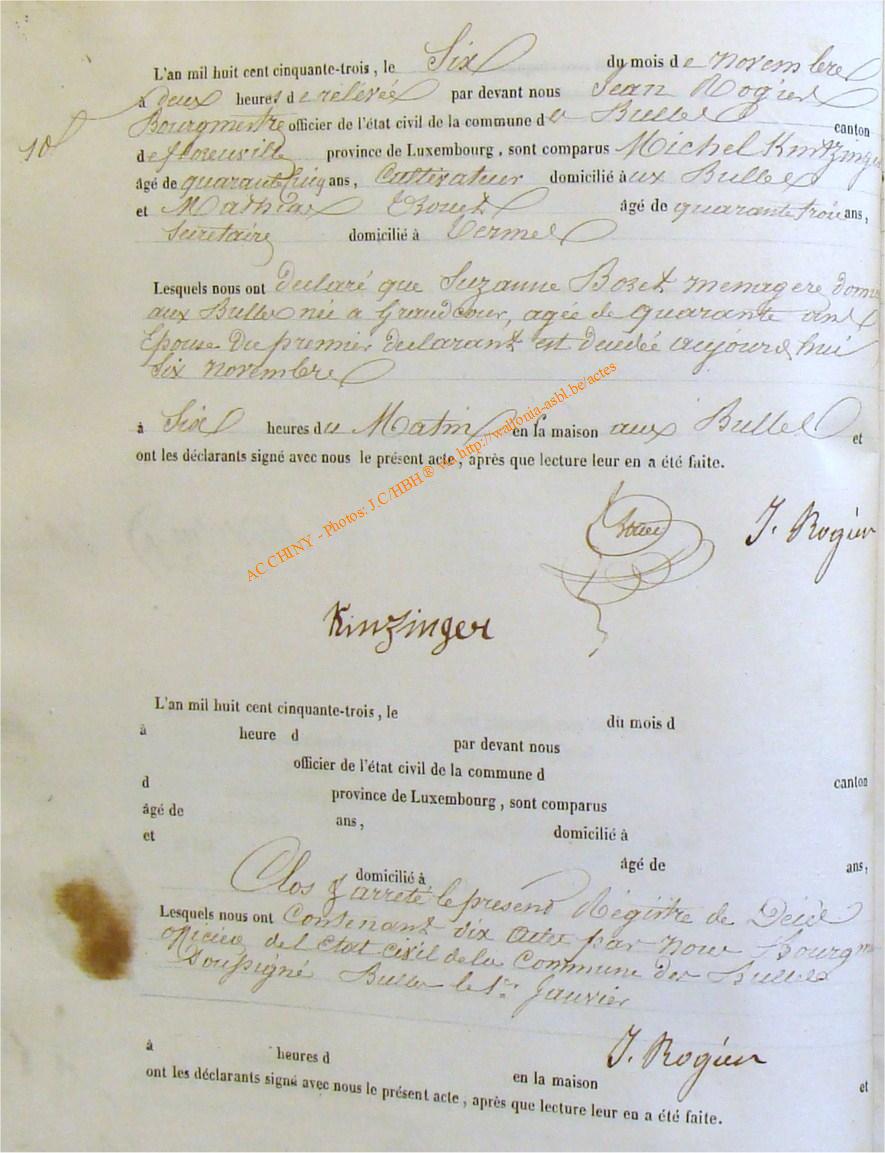 L'an mil huit cent cinquante-trois, le Six du mois de novembre
à deux heures de rélévée par devant nous Jean Rogier
Bourgmestre officier de l'état civil de la commune des Bulles canton
10
de florenville province de Luxembourg, sont comparus Michel Kintzinger
âgé de quarante cinq ans, Cultivateur domicilié aux Bulles
et Mathias âgé de quarante trois ans,
Secretaire domicilié à Termes
Lesquels nous ont declaré que Suzanne Bozet menagere domi
aux Bulles née a Grandcour, agée de quarante ans
Epouse du premier declarant est decedée aujourd hui
Six novembre
à Six heures du Matin en la maison aux Bulles et
ont les déclarants signé avec nous le présent acte, après que lecture leur en a été faite.
J. Rogier
Kinzinger
AC CHINY - Photos: J.C/HBH® via http://wallonia-asbl.be/actes
L'an mil huit cent cinquante-trois, le du mois d
à heure d par devant nous
officier de l'état civil de la commune d canton
d province de Luxembourg, sont comparus
âgé de ans, domicilié à
et âgé de ans,
domicilié à
Clos & arreté le present Régistre de Décès
Lesquels nous ont
Contenant dix actes par nous Bourgm
officier de l'Etat civil de la Commune des Bulles
Soussigné Bulles le 1er Janvier
J. Rogier
à heures d en la maison et
ont les déclarants signé avec nous le présent acte, après que lecture leur en a été faite.